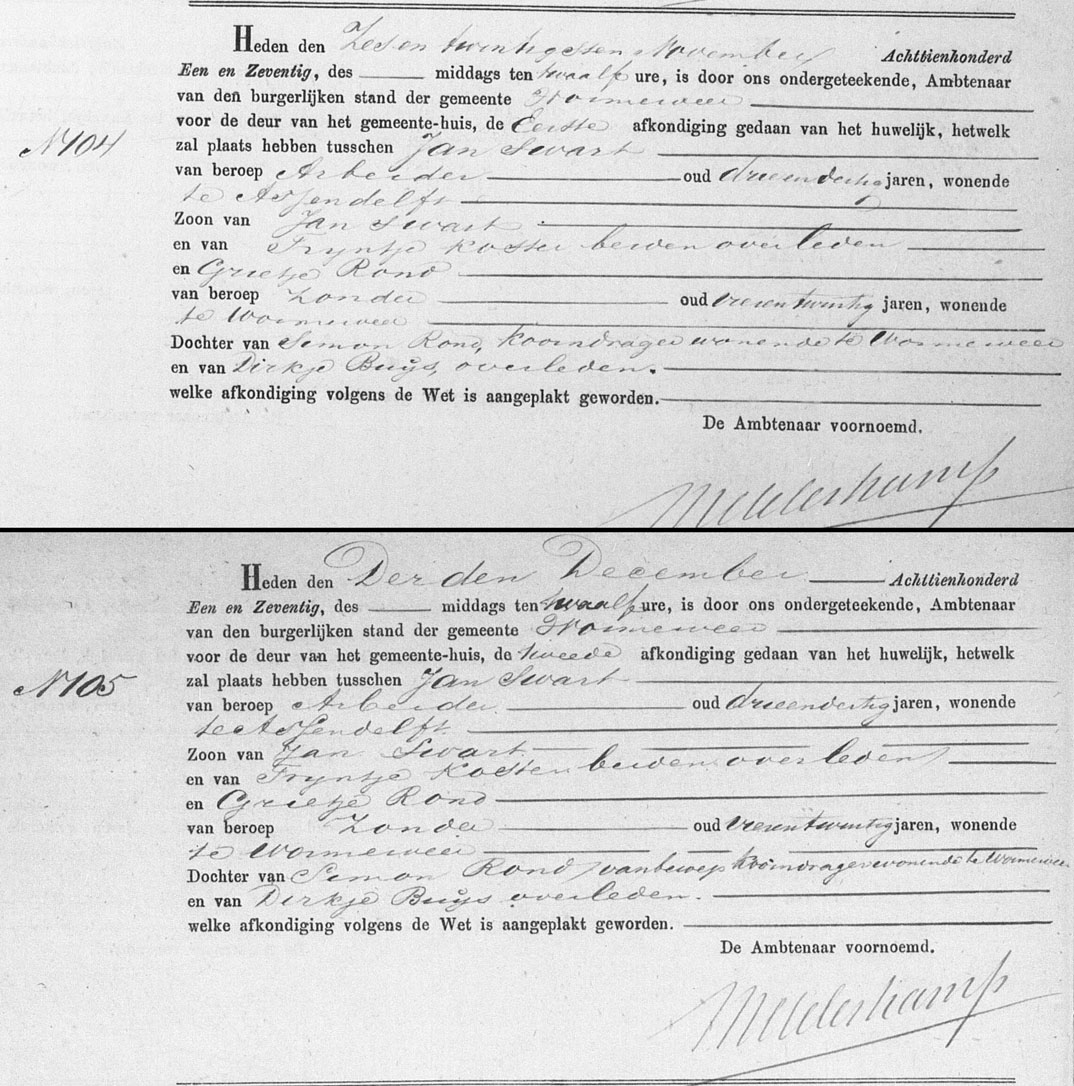 Heden den Zes en twintigsten November Achttienhonderd
Een en Zeventig, des middags ten twaalf ure, is door ons ondergeteekende, Ambtenaar
van den burgerlijken stand der gemeente Wormerveer
voor de deur van het gemeente-huis, de Eerste afkondiging gedaan van het huwelijk, hetwelk
No 104
zal plaats hebben tusschen Jan Swart
van beroep Arbeider oud drieendertig jaren, wonende
te Assendelft
Zoon van Jan Swart
en van Tryntje Koster beiden overleden
en Grietje Rond
van beroep Zonder oud vierentwintig jaren, wonende
te Wormerveer
Dochter van Simon Rond, Koorndrager wonende te Wormerveer
en van Dirkje Buijs, overleden.
welke afkondiging volgens de Wet is aangeplakt geworden.
De Ambtenaar voornoemd.
Heden den Derden December Achttienhonderd
Een en Zeventig, des middags ten twaalf ure, is door ons ondergeteekende, Ambtenaar
van den burgerlijken stand der gemeente Wormerveer
voor de deur van het gemeente-huis, de tweede afkondiging gedaan van het huwelijk, hetwelk
No 105
zal plaats hebben tusschen Jan Swart
van beroep Arbeider oud drieendertig jaren, wonende
te Assendelft
Zoon van Jan Swart
en van Tryntje Koster beiden overleden
en Grietje Rond
van beroep Zonder oud vierentwintig jaren, wonende
te Wormerveer
Dochter van Simon Rond, van beroep Koorndrager wonende te Wormerveer
en van Dirkje Buijs overleden.
welke afkondiging volgens de Wet is aangeplakt geworden.
De Ambtenaar voornoemd.